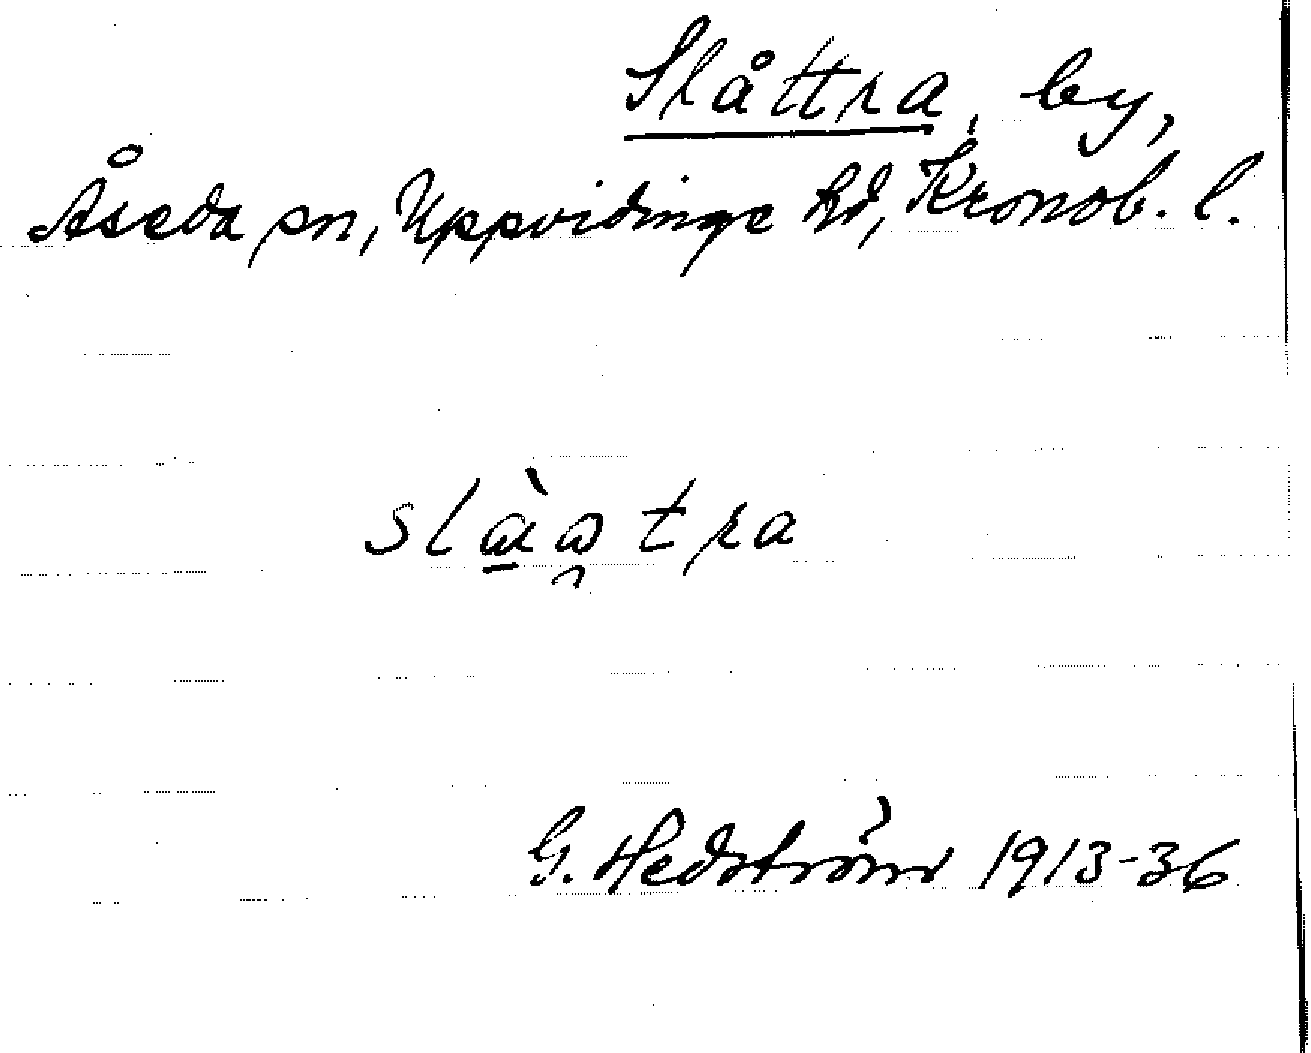 Slåttra, by,
Åseda sn, Uppvidinge hd, Kronob. l.
G. Hedström 1913-36